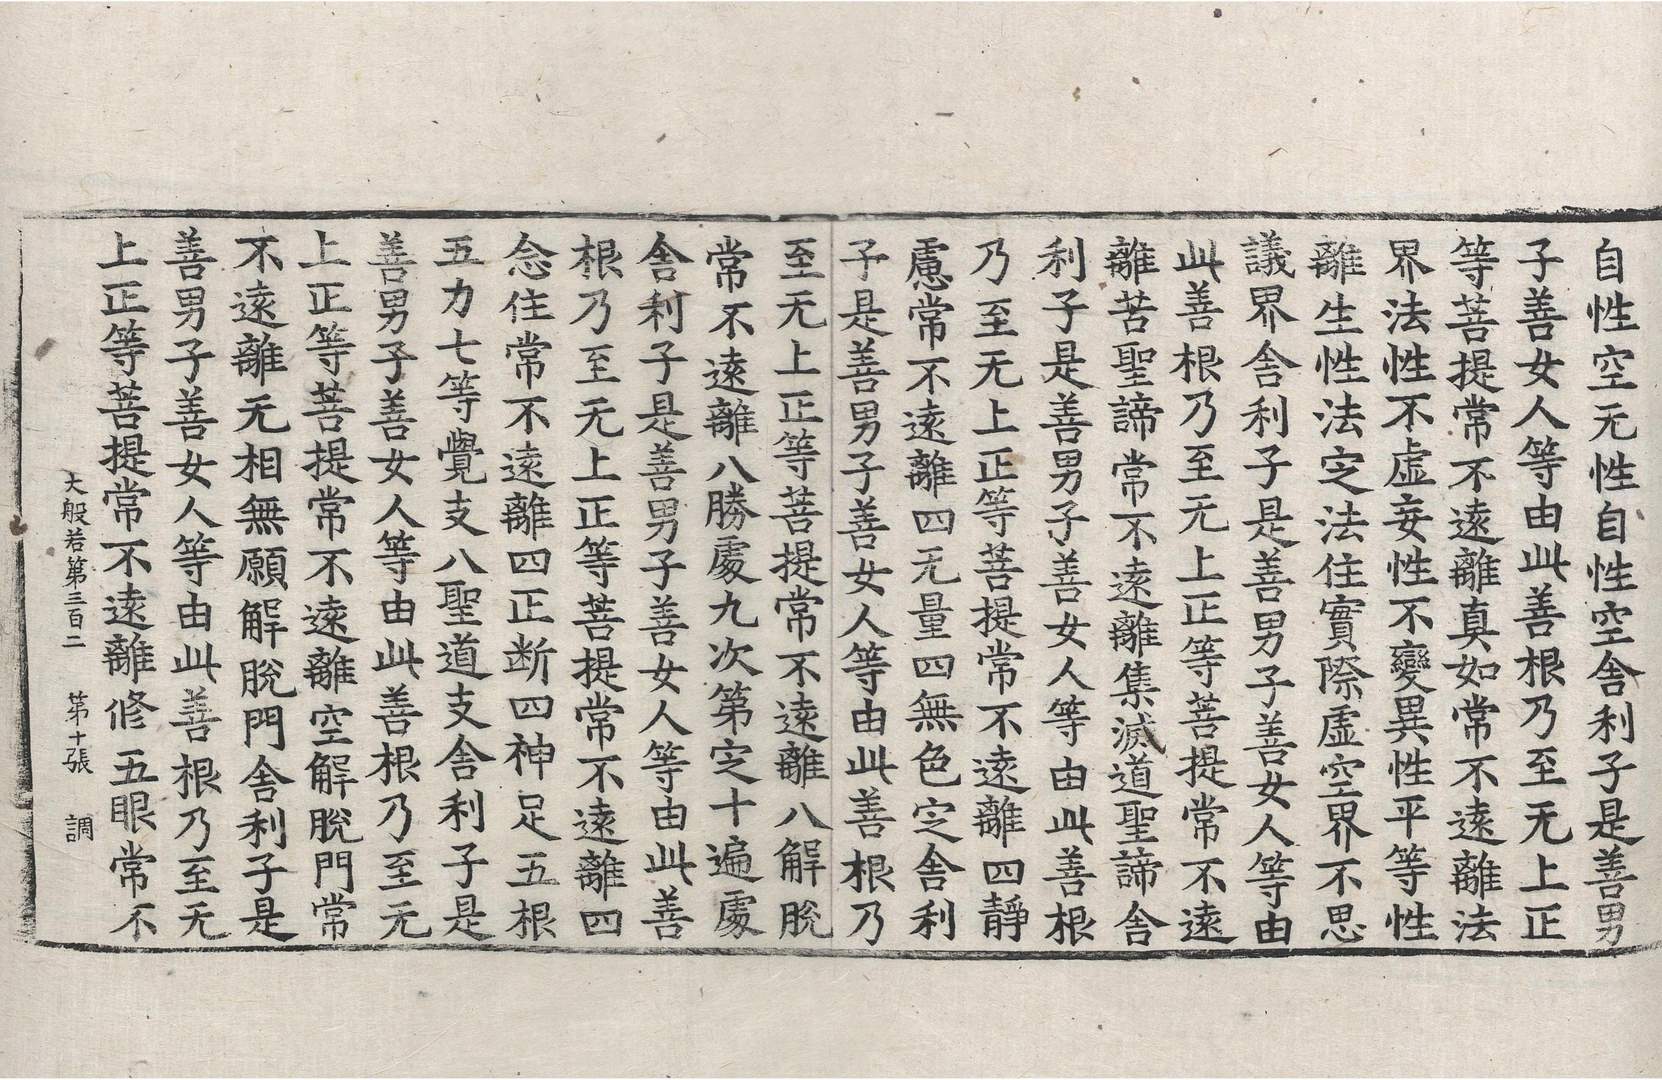 自性空无性自性空舍利子是善男
子善女人等由此善根乃至无上正
等菩提常不遠離真如常不遠離法
界法性不虛妄性不變異性平等性
離生性法定法住實際虛空界不思
議界舍利子是善男子善女人等由
此善根乃至无上正等菩提常不遠
離苦聖諦常不遠離集滅道聖諦舍
利子是善男子善女人等由此善根
乃至无上正等菩提常不遠離四靜
慮常不遠離四无量四無色定舍利
子是善男子善女人等由此善根乃
至无上正等菩提常不遠離八解脫
常不遠離八勝處九次第定十遍處
舍利子是善男子善女人等由此善
根乃至无上正等菩提常不遠離四
念住常不遠離四正断四神足五根
五力七等覺支八聖道支舍利子是
善男子善女人等由此善根乃至无
上正等菩提常不遠離空解脫門常
不遠離无相無願解脫門舍利子是
善男子善女人等由此善根乃至无
上正等菩提常不遠離修五眼常不
大般若第三百二　第十張　調